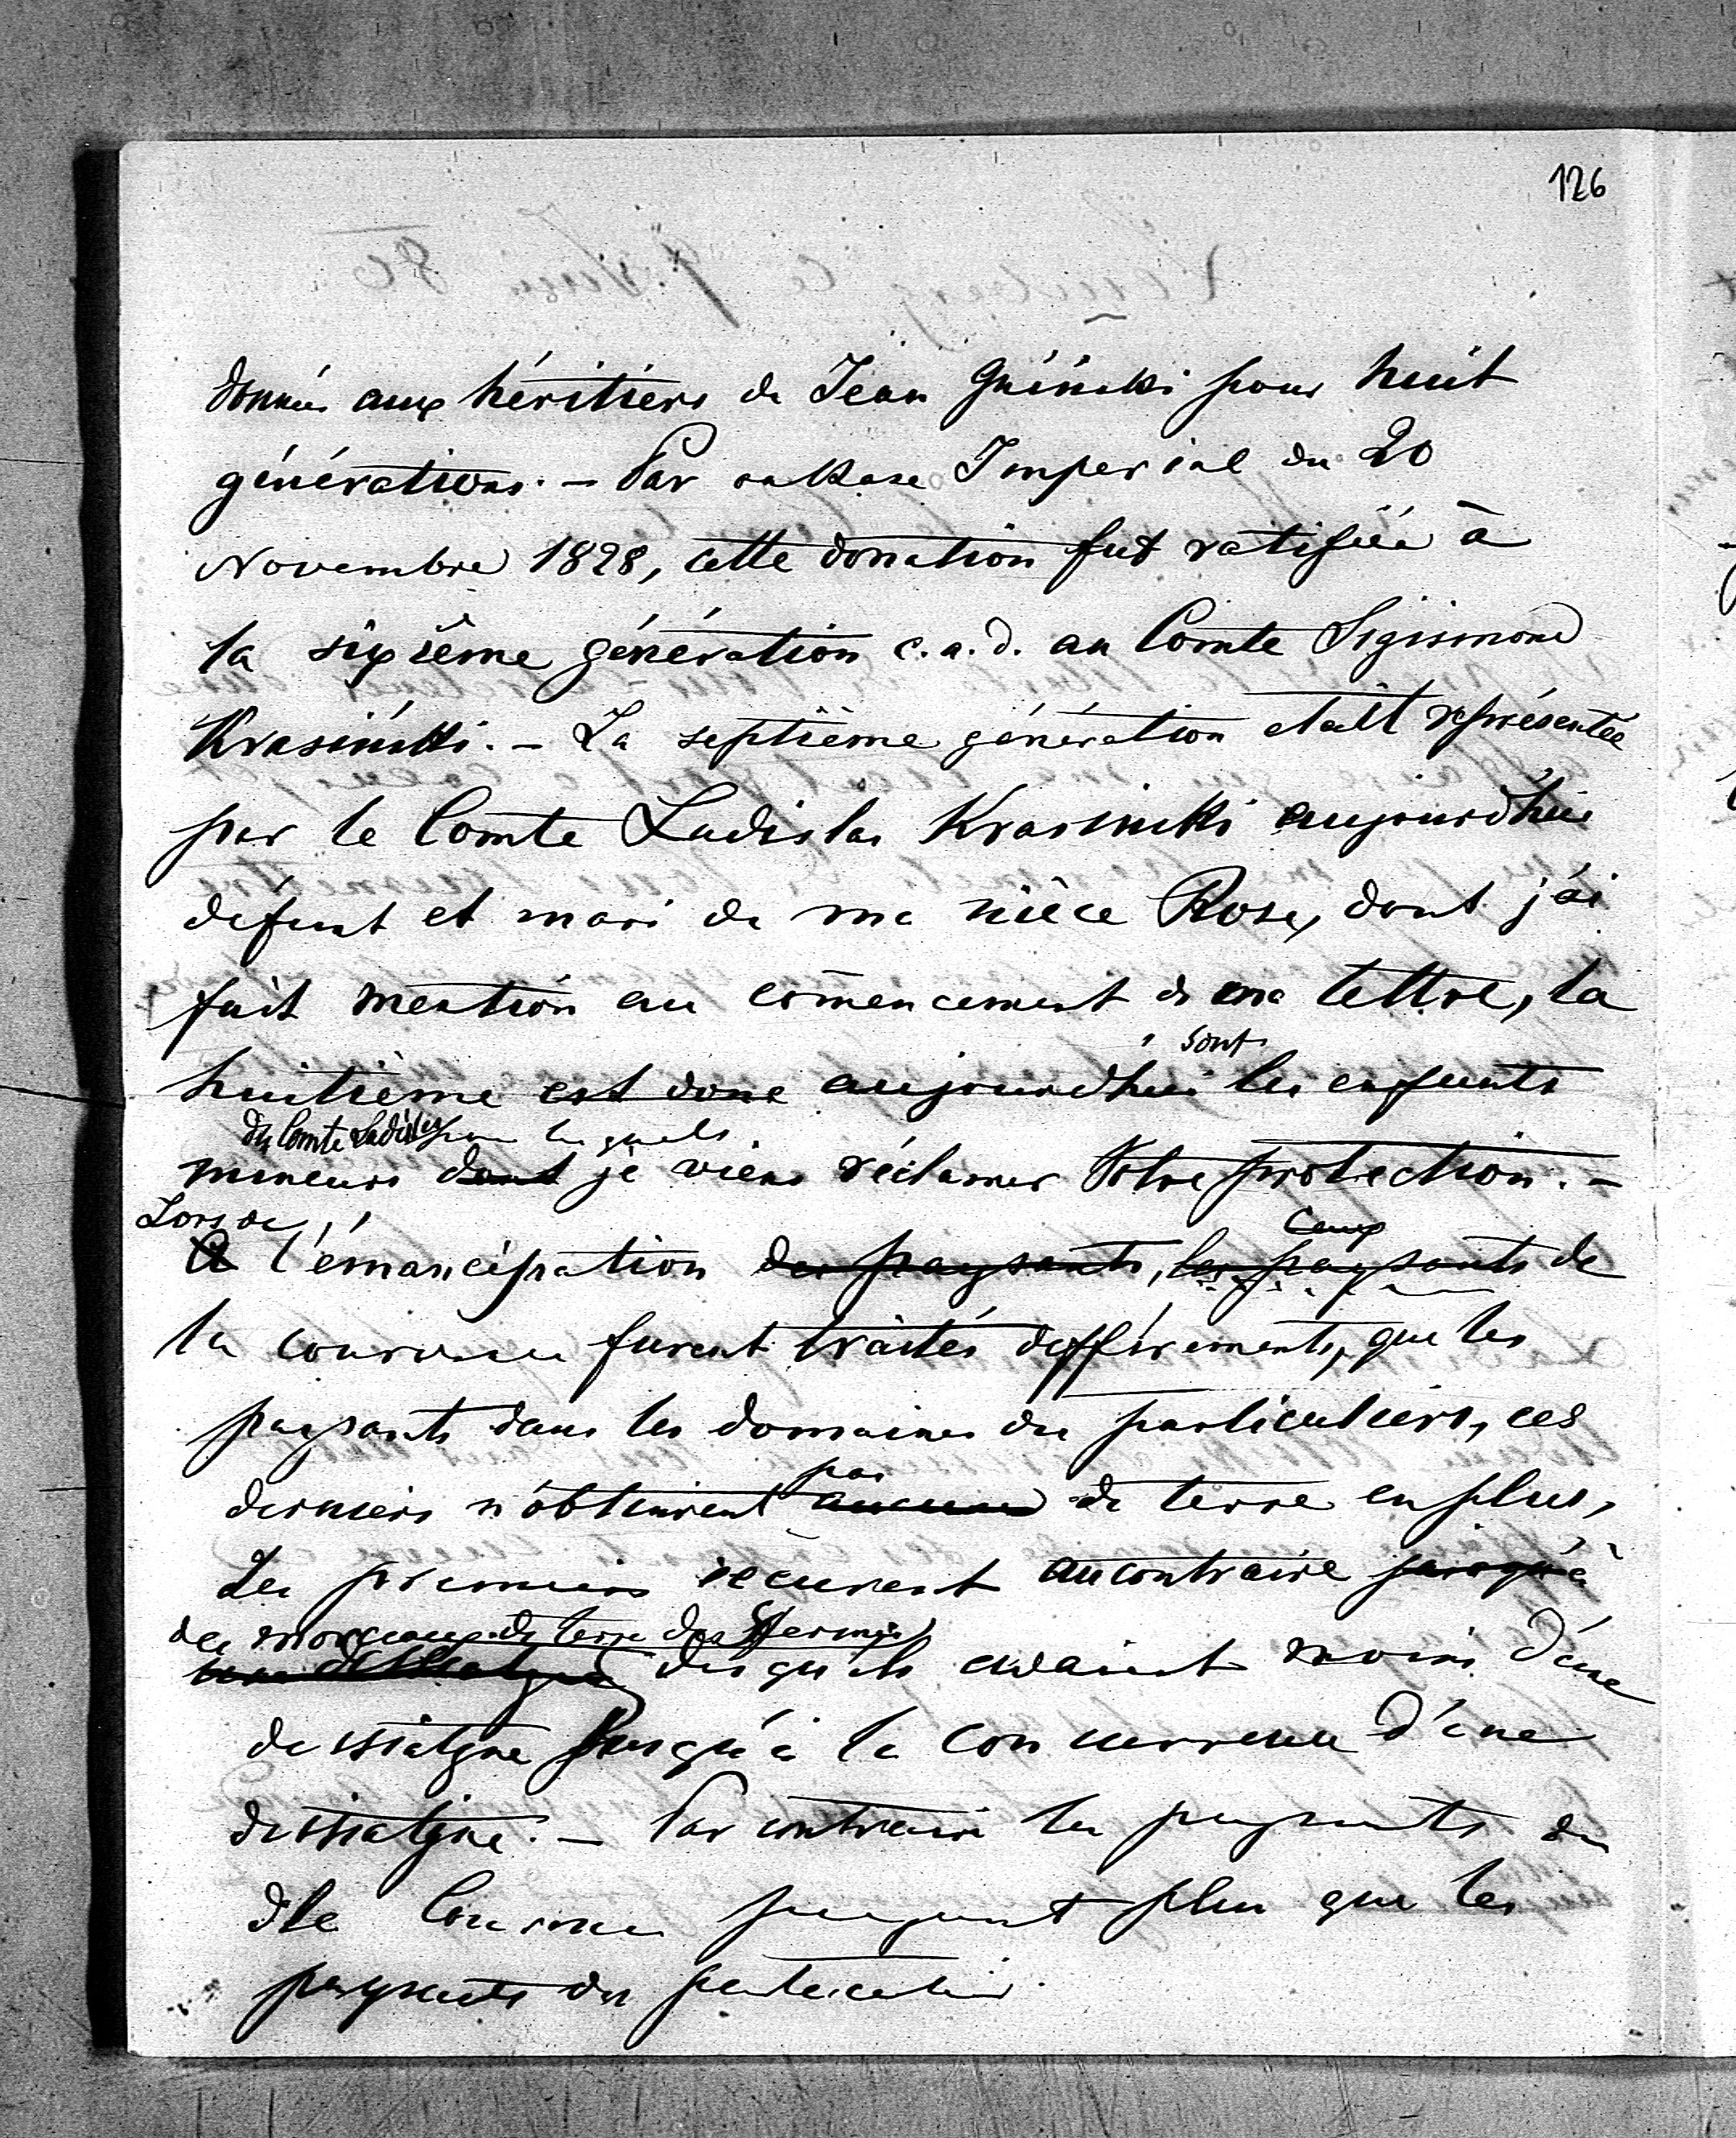 126
donnés aux héritiers de Jean Gninski pour huit
générations. – Par oukase Imperial du 20
Novembre 1828, cette donation fut ratifiée à
la sixième génération c.a.d. au Comte Sigismond
Krasinski. – La septième génération etait représentée
par le Comte Ladislas Krasinski aujourdhui
défunt et mari de ma nièce Rose, dont j'ai
fait mention au comencement de ma lettre, la
sont
huitième est donc aujourdhui les enfants
du Comte Ladislas pour lesquels
mineurs dont je viens réclamer Votre protection. –
Lors de Ceux
A l'émancipation des paysants, les paysants de
la couronne furent traités différements, que les
paysants dans les domaines des particuliers, ces
pas
derniers n'obtinrent aucune de terre en plus,
Les premiers recurent au contraire jusqu'à
des morceaux de terre des
une dessiatyne dès qu'ils avaient moins d'une
dessiatyne jusqu'à la concurrence d'une
dessiatyne. – Par contraire les paysants du
plus que les
paysants des particuliers.